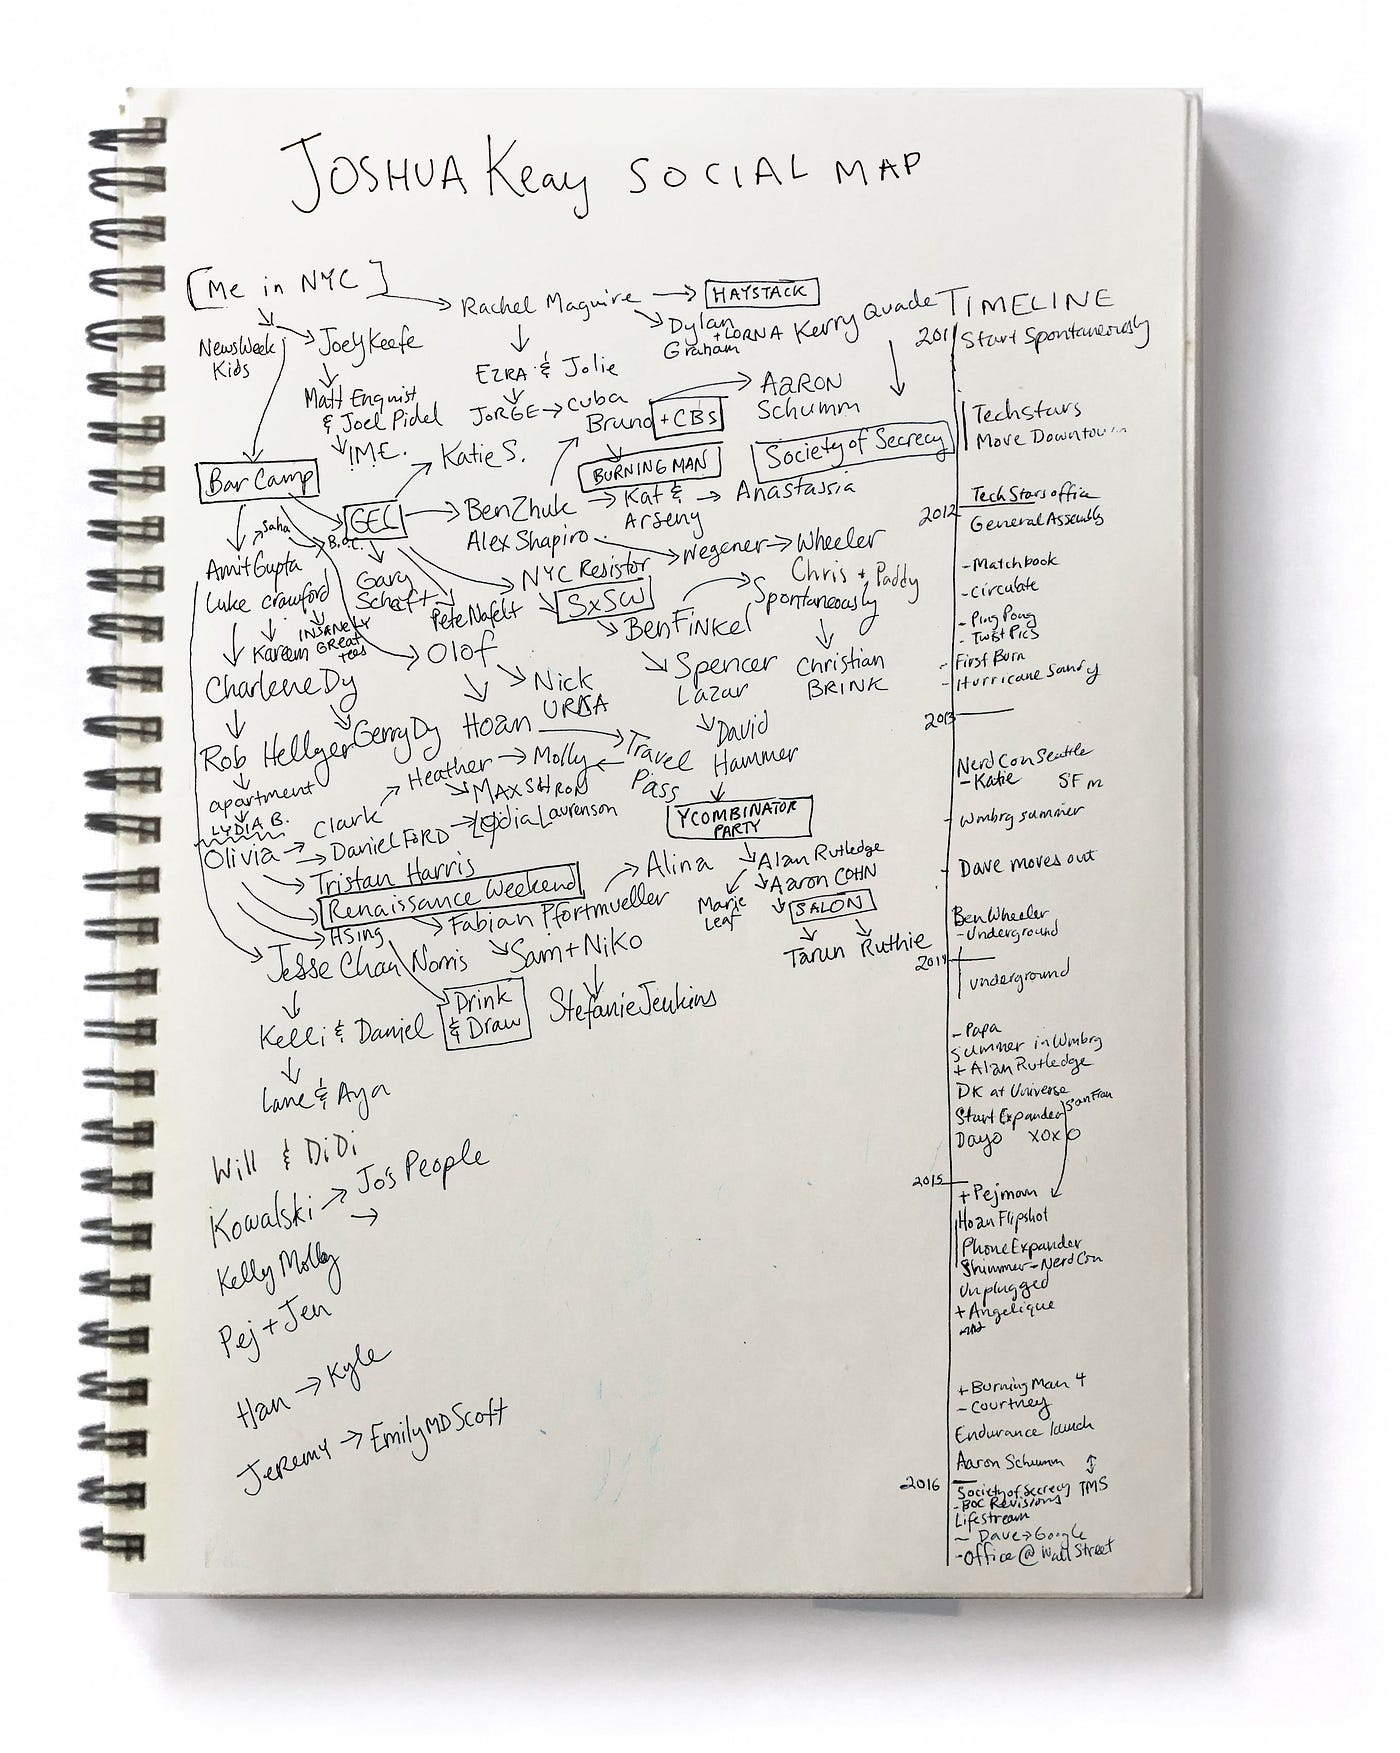 JOSHUA Keay SOCIAL MAP
[Me in NYC]
Rachel Maguire → HAYSTACK
NewsWeek
Kids
Joey Keefe
Dylan
Graham
+ LORNA Kerry Quade
EZRA & Jolie
Matt Enquist
& Joel Pidel
I.M.E.
JORGE → Cuba
Bruno + CBS
AARON
Schumm
Katie S.
BURNING MAN
Society of Secrecy
Bar Camp
GEL
Ben Zhuk → Kat &
Arseny → Anastassia
Alex Shapiro
Wegener → Wheeler
Saha
B.O.C.
Amit Gupta
Luke Crawford
Gary
Scheft
NYC Resistor
Chris + Paddy
SXSW
Spontaneously
Pete Nofelt
Kareem
INSANELY
GREAT
tees
Ben FiNKel
Olof
Charlene Dy
Nick
URBA
Spencer
Lazar
Christian
BRINK
Gerry Dy
Hoan
David
Hammer
Rob Hellyer
Heather → Molly ←
Travel
Pass
apartment
MAX SHRON
LYDIA B.
Clark
Lydia Laurenson
YCOMBINATOR
PARTY
Olivia → Daniel FORD
Tristan Harris
Alina
Alan Rutledge
Renaissance Weekend
Aaron COHN
Marie
Leaf
SALON
Hsing
Fabian Pfortmueller
Jesse Chan Norris
Sam + Niko
Tarun Ruthie
Kelli & Daniel
Drink
& Draw
Stefanie Jenkins
Lane & Aya
Will & DiDi
Kowalski → Jo's People
→
Kelly Molly
Pej + Jen
Han → Kyle
Jeremy → Emily MD Scott
TIMELINE
2011 Start Spontaneously
Techstars
Move Downtown
TechStars office
2012
General Assembly
- Matchbook
- Circulate
- Ping Pong
- Twist Pics
- First Burn
- Hurricane Sandy
2013
Nerd Con Seattle
- Katie SF m
- Wmbrg summer
- Dave moves out
Ben Wheeler
- Underground
2014
underground
- Papa
summer in Wmbrg
+ Alan Rutledge
DK at Universe
Start Expander San Fran
Dayo XOXO
2015
+ Pejman
Hoan Flipshot
Phone Expander
Shimmer - Nerd Con
Unplugged
+ Angelique
+ Burning Man 4
- Courtney
Endurance launch
Aaron Schumm
2016
Society of Secrecy TMS
- BOC Revisions
Lifestream
- Dave → Google
- Office @ Wall Street